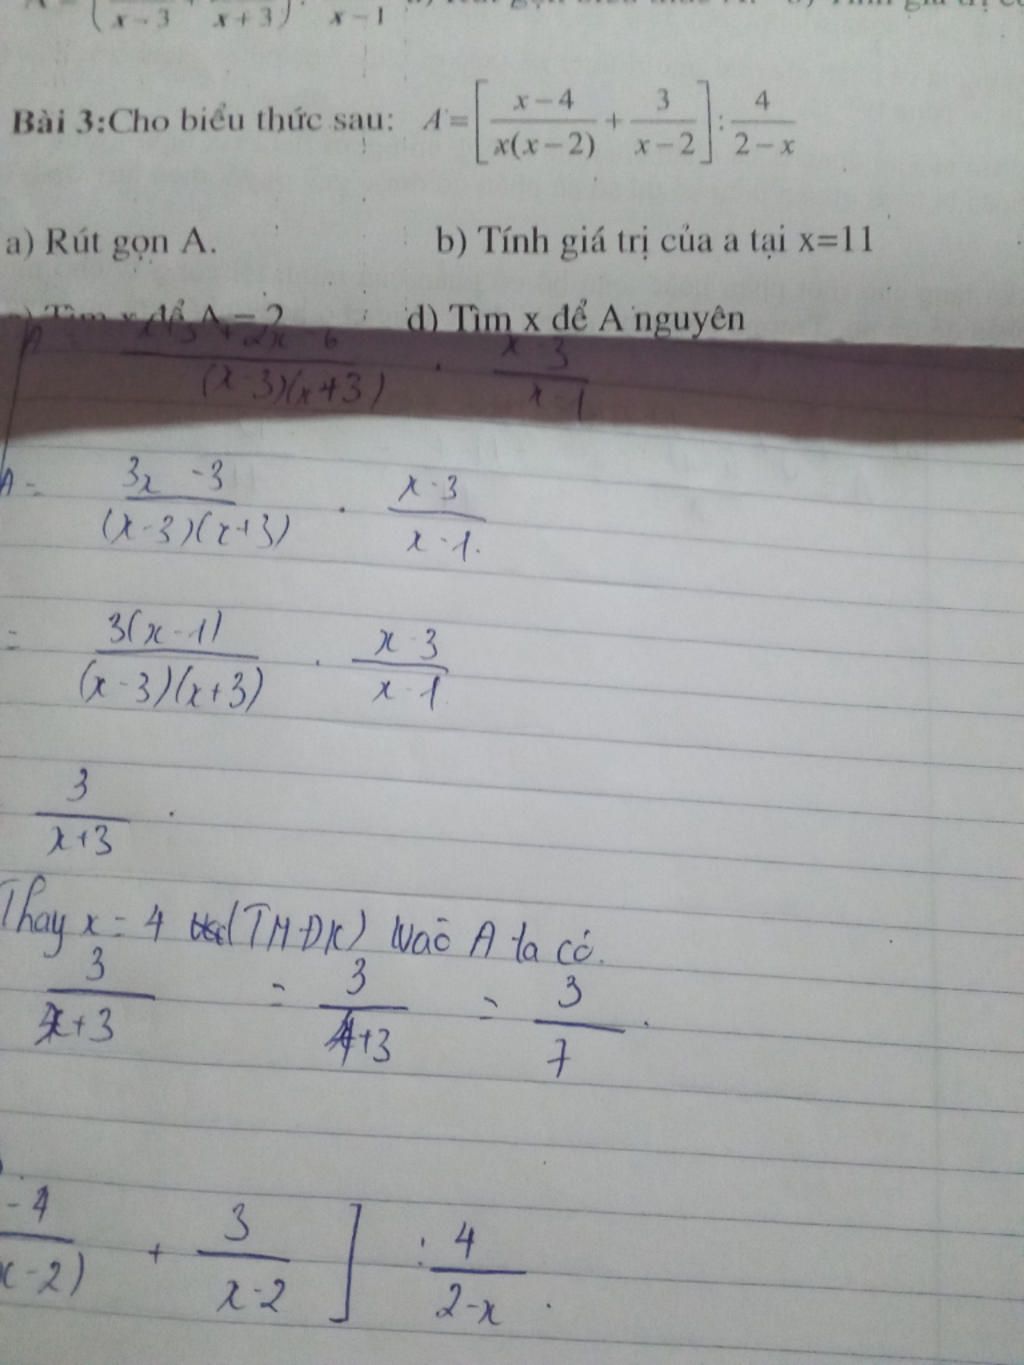 x-3 x+3) x-1
Bài 3:Cho biểu thức sau: A=[(x-4)/(x(x-2)) + 3/(x-2)]:4/(2-x)
a) Rút gọn A. b) Tính giá trị của a tại x=11
Tìm x để A = 2 d) Tìm x để A nguyên
(x-3)(x+3) . (x-3)/(x-1)
A= (3x-3)/((x-3)(x+3)) . (x-3)/(x-1).
= 3(x-1)/((x-3)(x+3)) . (x-3)/(x-1)
3/(x+3) .
Thay x = 4 (TMĐK) vào A ta có.
3/(x+3) = 3/(4+3) = 3/7 .
-4/(x-2) + 3/(x-2) ] : 4/(2-x) .